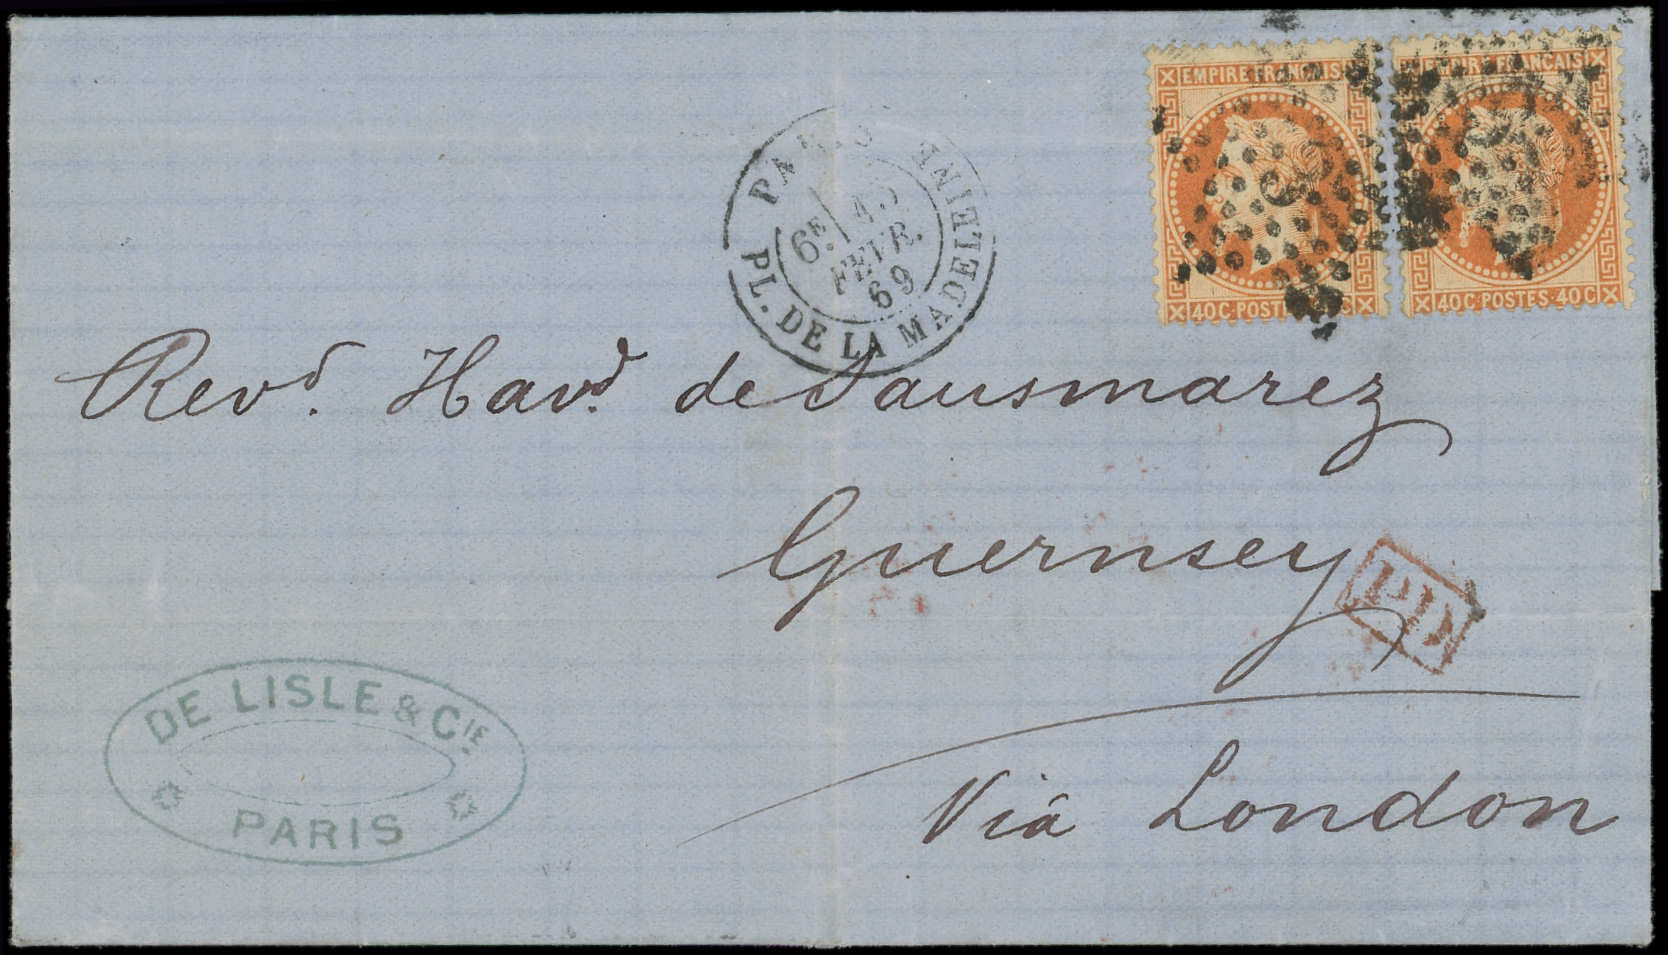 EMPIRE FRANÇAIS
40 C·POSTES·40 C
EMPIRE FRANÇAIS
40 C·POSTES·40 C
PARIS
PL. DE LA MADELEINE
6E
FEVR.
69
Revd. Havd. de Sausmarez
Guernsey
PD
Viâ London
DE LISLE & CIE.
PARIS